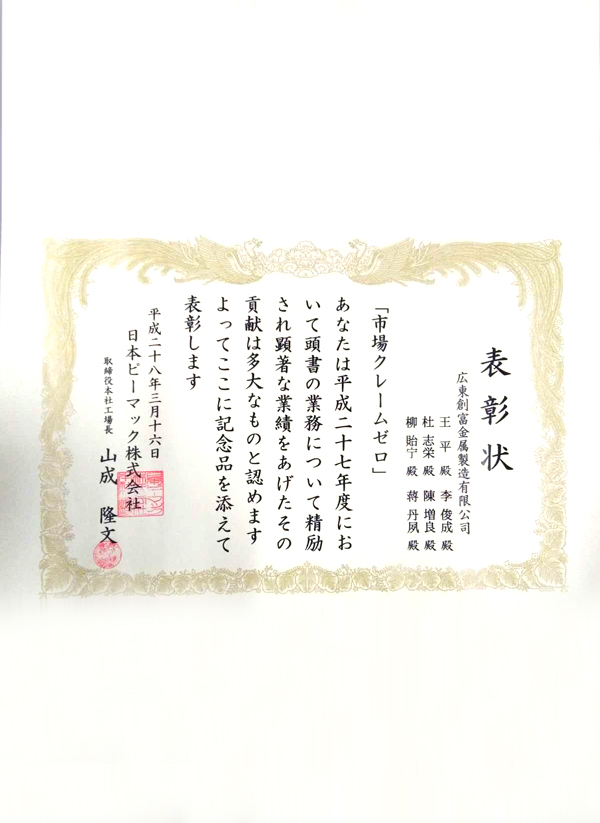 表彰状
広東創富金属製造有限公司
王 平 殿 李 俊成 殿
杜 志栄 殿 陳 増良 殿
柳 貽宁 殿 蒋 丹夙 殿
「市場クレームゼロ」
あなたは平成二十七年度にお
いて頭書の業務について精励
され顕著な業績をあげたその
貢献は多大なものと認めます
よってここに記念品を添えて
表彰します
平成二十八年三月十六日
日本ビーマック株式会社
取締役本社工場長 山成 隆文